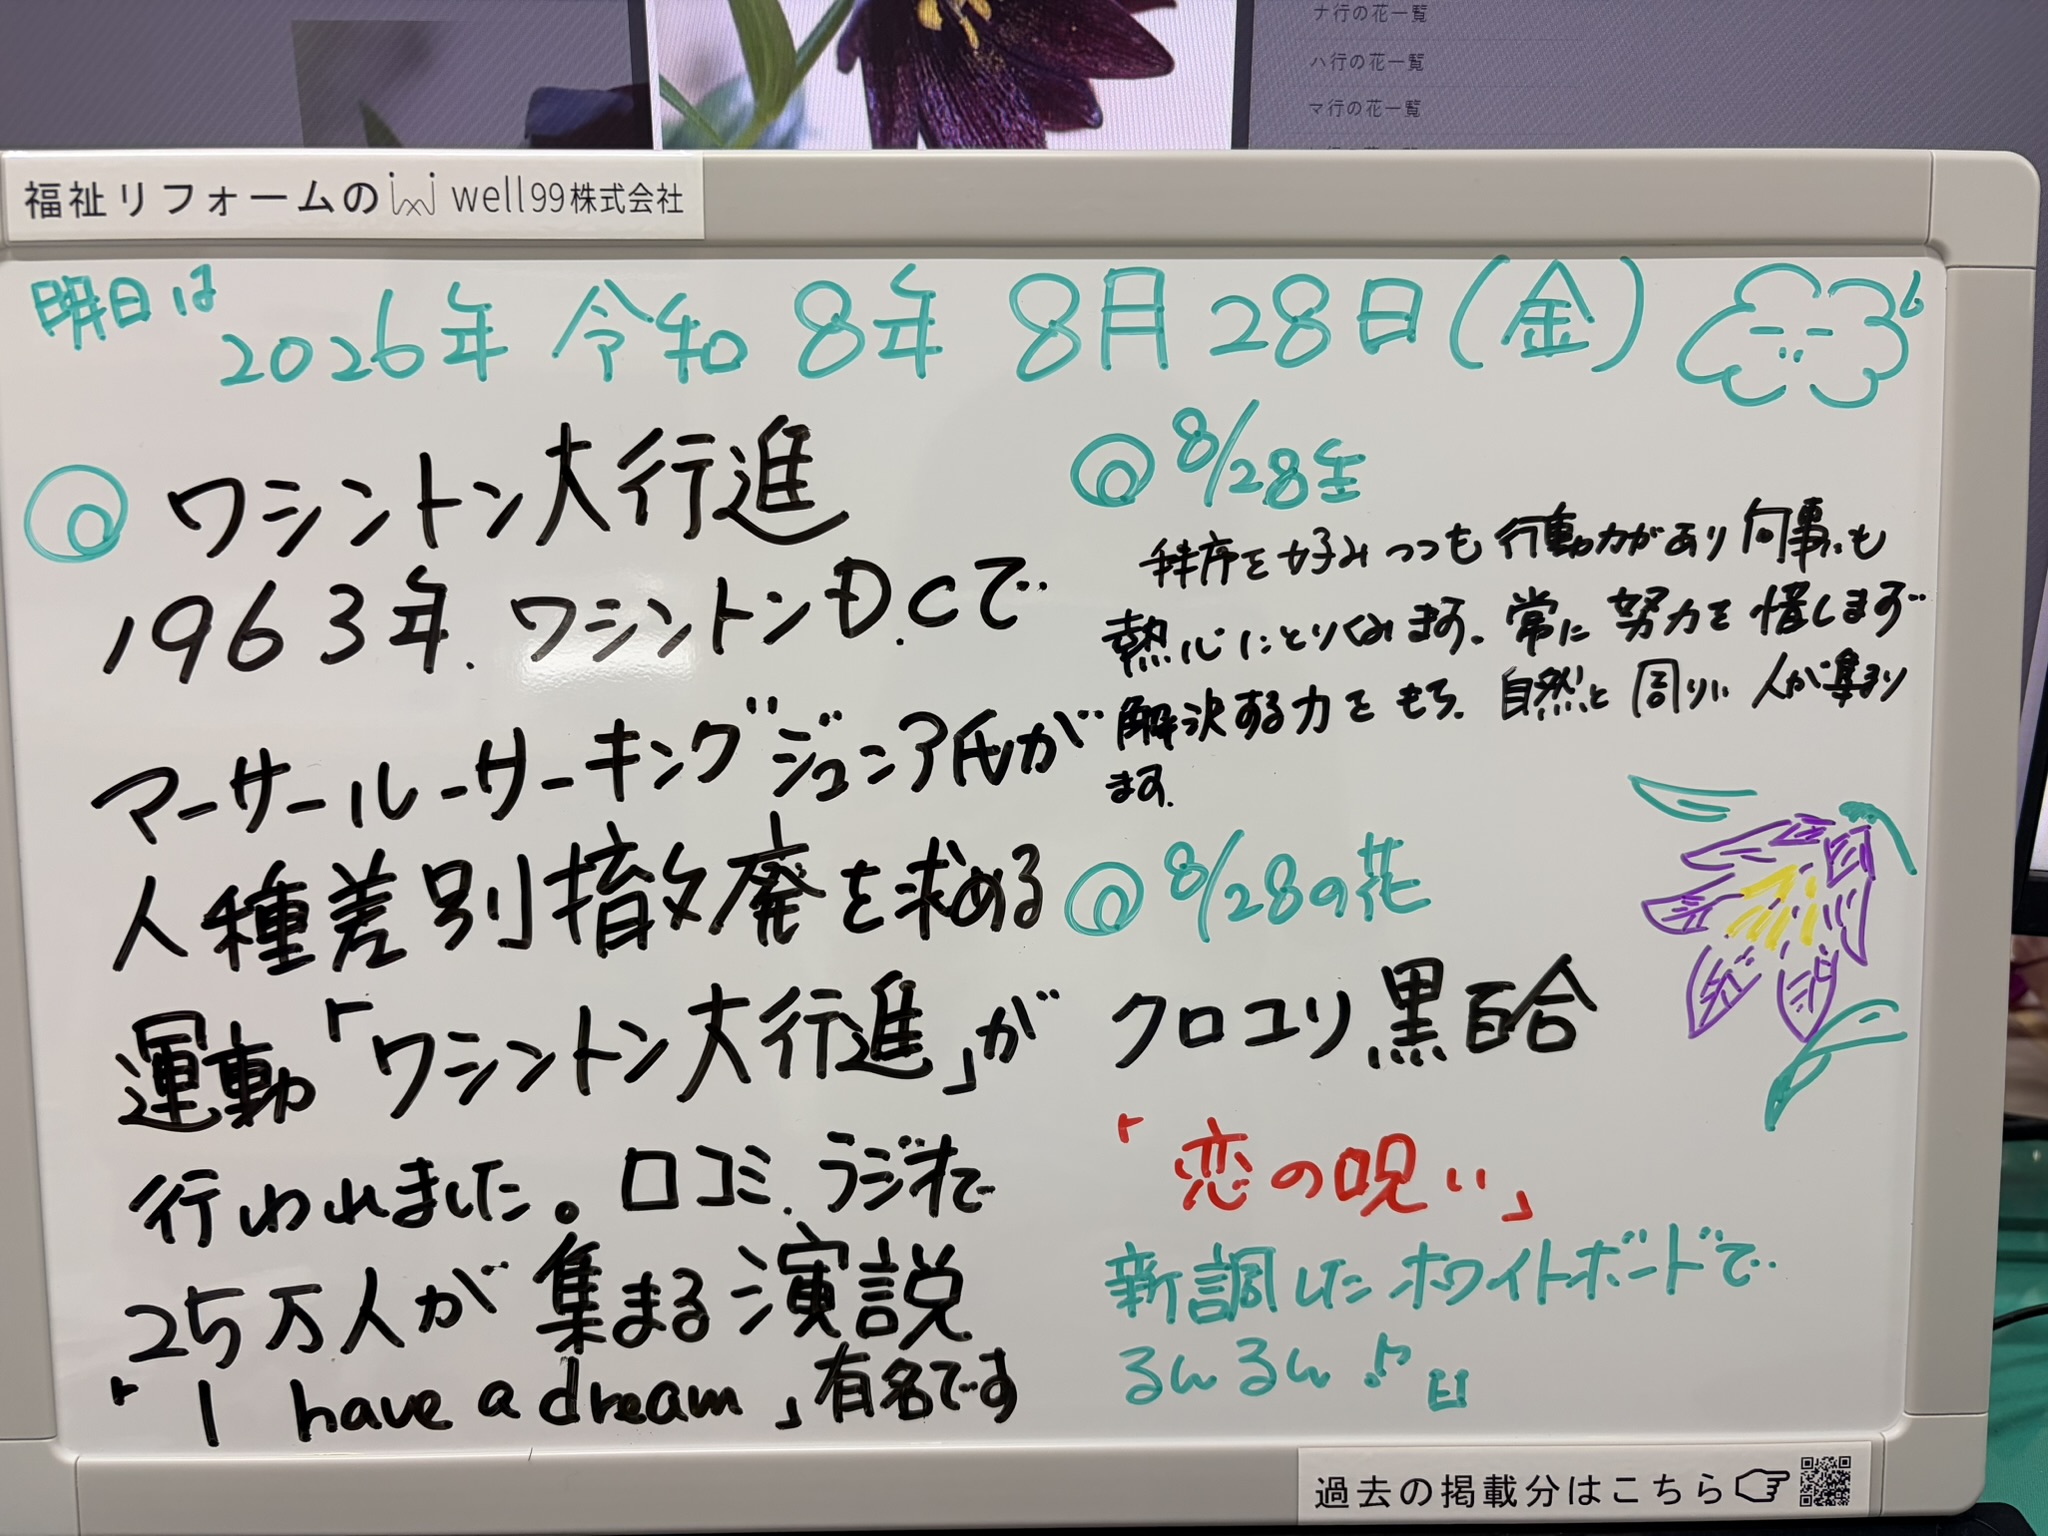 ナ行の花一覧
ハ行の花一覧
マ行の花一覧
福祉リフォームの well99株式会社
明日は
2026年 令和 8年 8月 28日(金)
ワシントン大行進
1963年、ワシントンD.Cで
マーサールーサーキングジュニア氏が
人種差別撤廃を求める
運動「ワシントン大行進」が
行われました。口コミ、ラジオで
25万人が集まる演説
「I have a dream」有名です
8/28生
秩序を好みつつも行動力があり何事も
熱心にとりくみます。常に努力を惜します
解決する力をもち、自然と周りに人が集まり
ます。
8/28の花
クロユリ 黒百合
「恋の呪い」
新調したホワイトボードで
るんるん♪
過去の掲載分はこちら